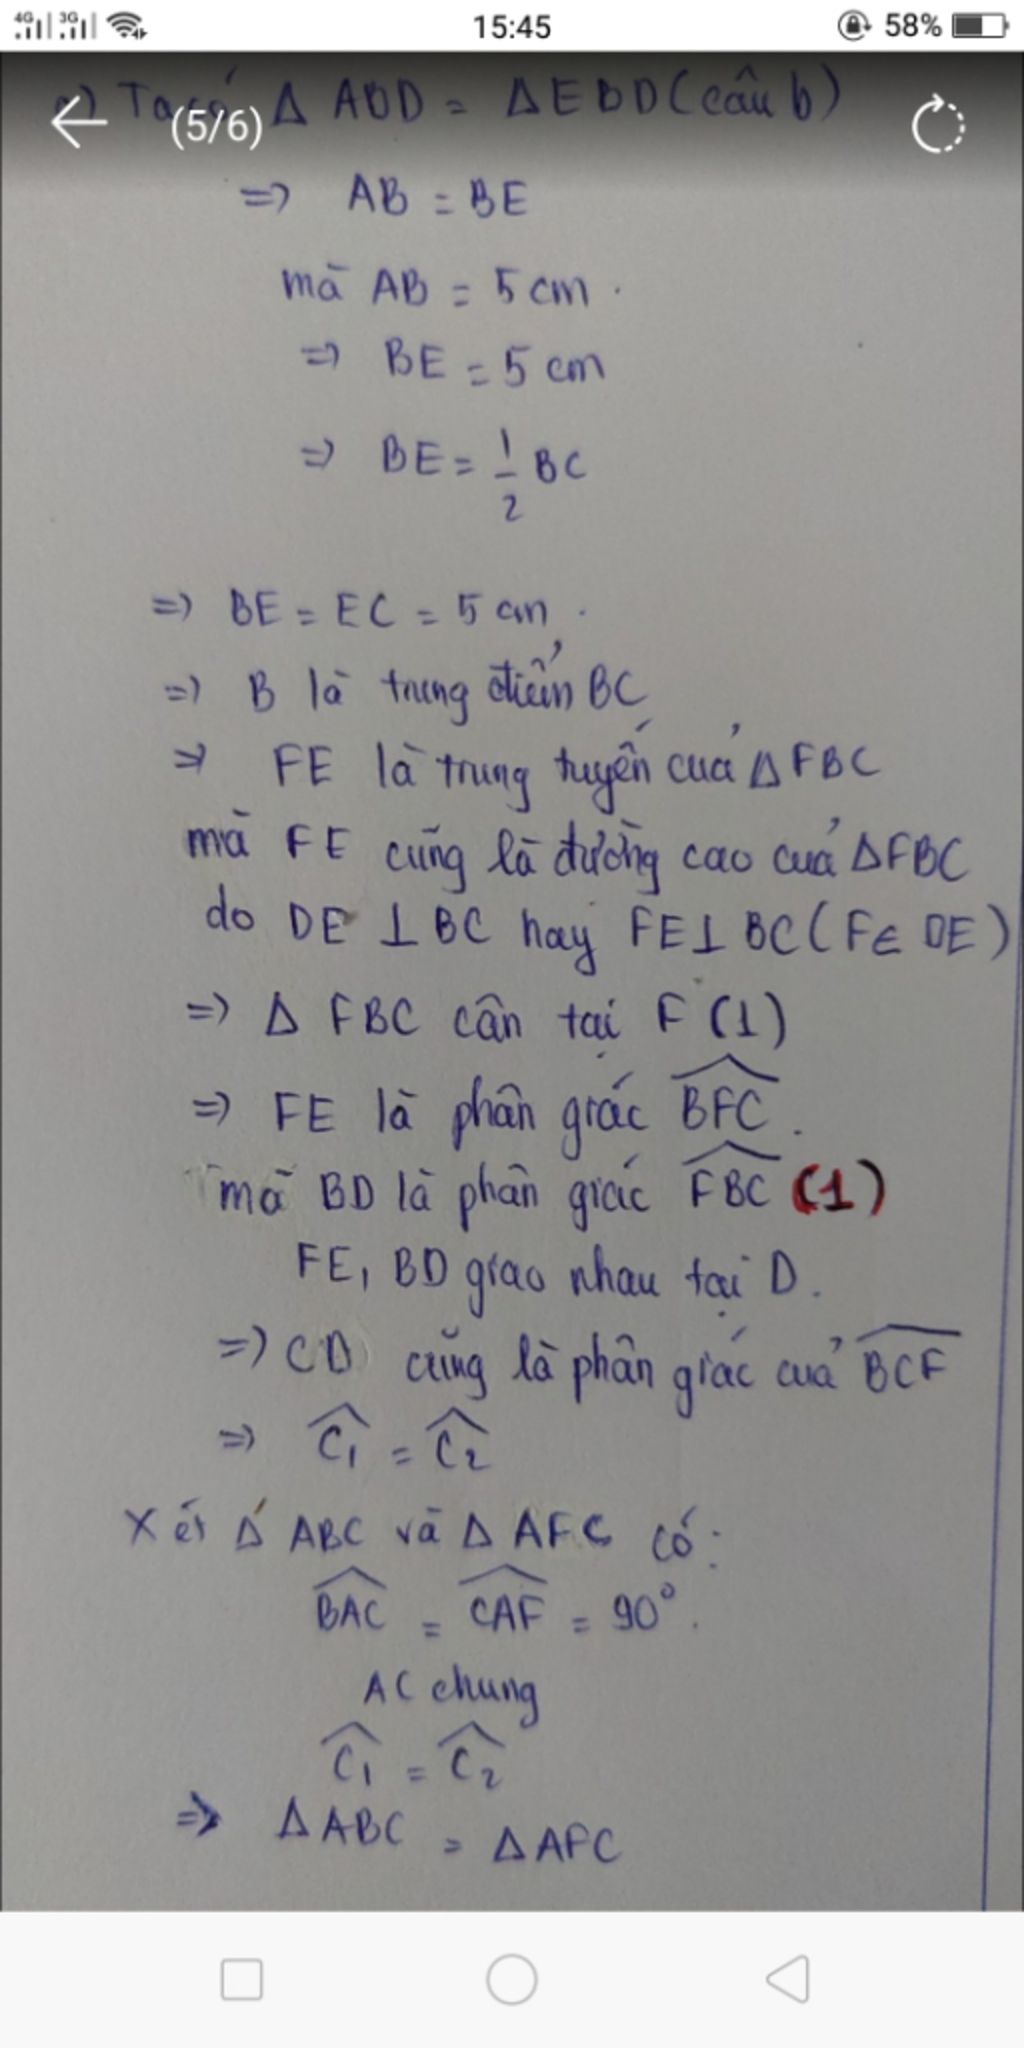 4G 3G 15:45 58%
c) Ta có Δ ABD = Δ EBD (câu b)
(5/6)
=> AB = BE
mà AB = 5 cm.
=> BE = 5 cm
=> BE = 1/2 BC
=> BE = EC = 5 cm.
=> B là trung điểm BC
=> FE là trung tuyến của Δ FBC
mà FE cũng là đường cao của Δ FBC
do DE ⊥ BC hay FE ⊥ BC (F ∈ DE)
=> Δ FBC cân tại F (1)
=> FE là phân giác \widehat{BFC}.
mà BD là phân giác \widehat{FBC} (1)
FE, BD giao nhau tại D.
=> CD cũng là phân giác của \widehat{BCF}
=> \widehat{C_1} = \widehat{C_2}
Xét Δ ABC và Δ AFC có:
\widehat{BAC} = \widehat{CAF} = 90°.
AC chung
\widehat{C_1} = \widehat{C_2}
=> Δ ABC = Δ AFC